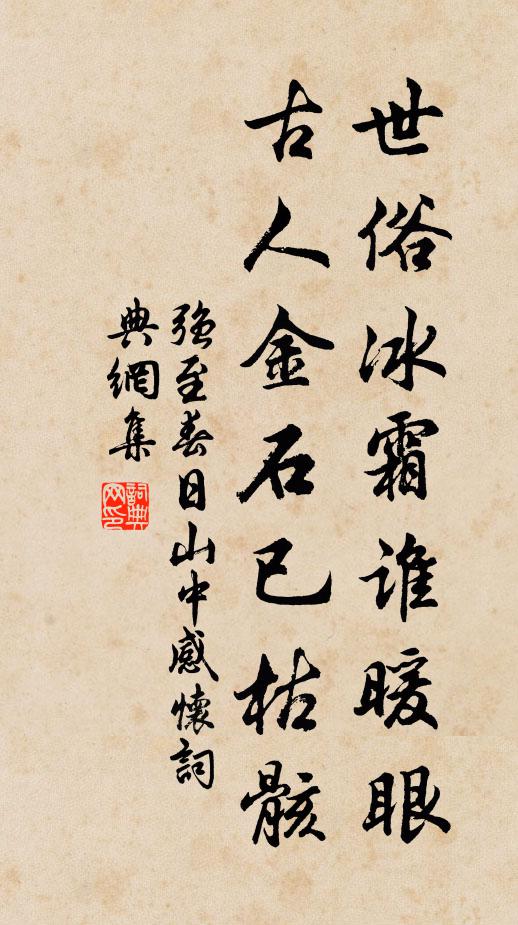 世俗冰霜谁暖眼
古人金石已枯骸
强至春日山中感懷詞
典網集
詞典网印